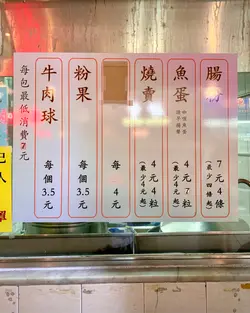 腸粉
7元4條
(最少四條起)
魚蛋
4元7粒
(最少4元起)
燒賣
4元4粒
(最少4元起)
每 4元
粉果
每個3.5元
牛肉球
每個3.5元
每包最低消費7元